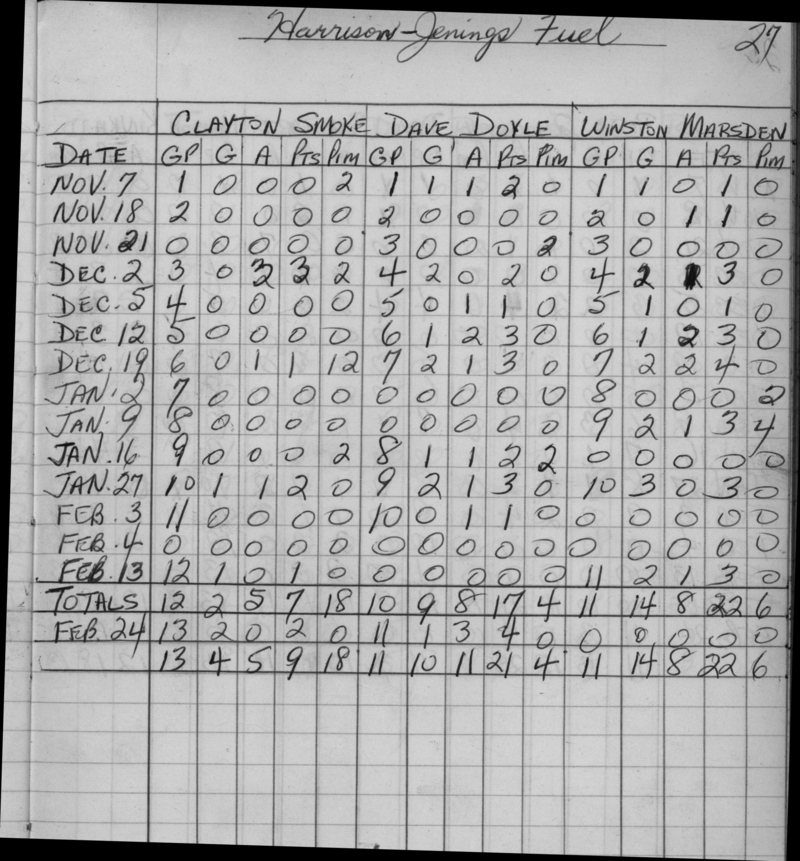 Harrison-Jenings Fuel 27
CLAYTON SMOKE DAVE DOYLE WINSTON MARSDEN
DATE GP G A Pts Pim GP G A Pts Pim GP G A Pts Pim
NOV. 7 1 0 0 0 2 1 1 1 2 0 1 1 0 1 0
NOV. 18 2 0 0 0 0 2 0 0 0 0 2 0 1 1 0
NOV. 21 0 0 0 0 0 3 0 0 0 2 3 0 0 0 0
DEC. 2 3 0 3 3 2 4 2 0 2 0 4 2 1 3 0
DEC. 5 4 0 0 0 0 5 0 1 1 0 5 1 0 1 0
DEC 12 5 0 0 0 0 6 1 2 3 0 6 1 2 3 0
DEC. 19 6 0 1 1 12 7 2 1 3 0 7 2 2 4 0
JAN. 2 7 0 0 0 0 0 0 0 0 0 8 0 0 0 2
JAN. 9 8 0 0 0 0 0 0 0 0 0 9 2 1 3 4
JAN. 16 9 0 0 0 2 8 1 1 2 2 0 0 0 0 0
JAN. 27 10 1 1 2 0 9 2 1 3 0 10 3 0 3 0
FEB. 3 11 0 0 0 0 10 0 1 1 0 0 0 0 0 0
FEB. 4 0 0 0 0 0 0 0 0 0 0 0 0 0 0 0
FEB. 13 12 1 0 1 0 0 0 0 0 0 11 2 1 3 0
TOTALS 12 2 5 7 18 10 9 8 17 4 11 14 8 22 6
FEB. 24 13 2 0 2 0 11 1 3 4 0 0 0 0 0 0
13 4 5 9 18 11 10 11 21 4 11 14 8 22 6